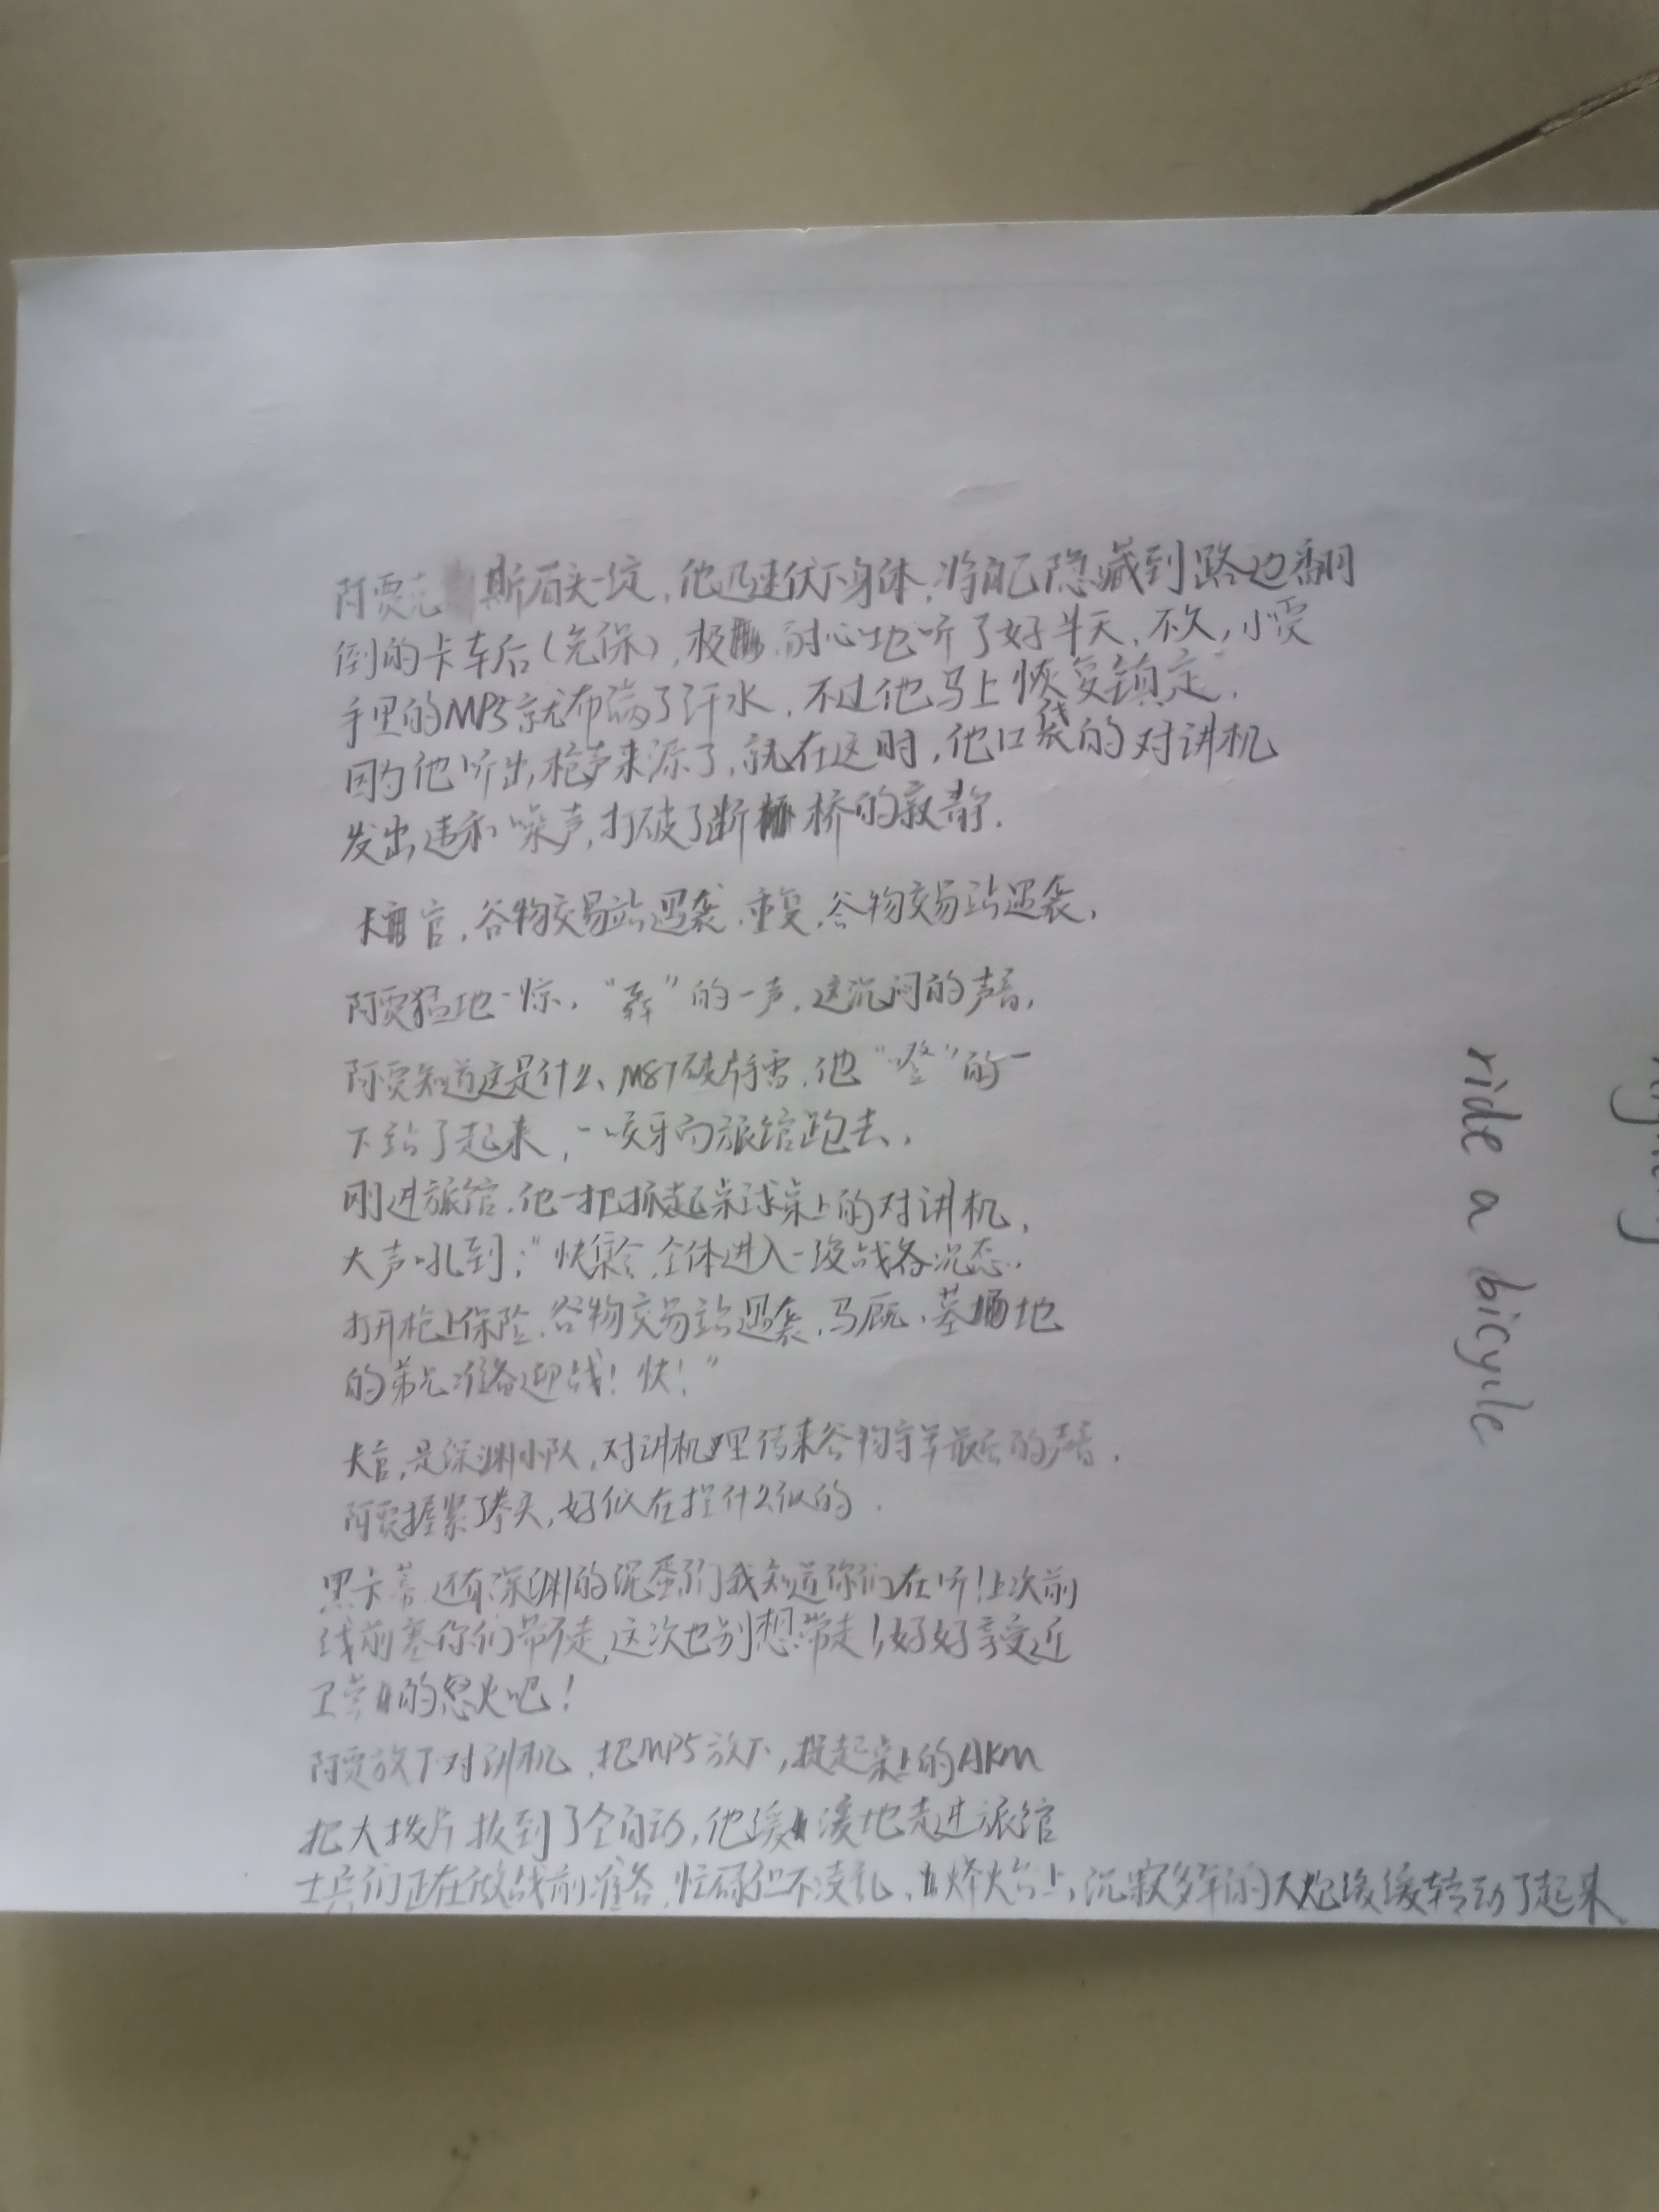 阿贾克斯眉头一皱,他迅速伏下身体,将自己隐藏到路边翻
倒的卡车后(充保),极耐心地听了好半天,不久,小贾
手里的MP5就布满了汗水,不过他马上恢复镇定,
因为他听出枪声来源了,就在这时,他口袋的对讲机
发出违和噪声,打破了断桥的寂静.
长官,谷物交易站遇袭,重复,谷物交易站遇袭,
阿贾猛地一惊,“轰”的一声,这沉闷的声音,
阿贾知道这是什么,M67破片手雷,他“噔”的一
下站了起来,一咬牙向旅馆跑去,
刚进旅馆,他一把抓起桌球桌上的对讲机,
大声吼到:“快集合,全体进入一级战备沉态,
打开枪上保险,谷物交易站遇袭,马厩,墓地
的弟兄准备迎战!快!”
长官,是深渊小队,对讲机里传来谷物守军最后的声音.
阿贾握紧了拳头,好似在捏什么似的.
黑卡蒂还有深渊的混蛋们我知道你们在听!上次前
线前塞你们带不走,这次也别想带走!好好享受近
卫营的怒火吧!
阿贾放下对讲机,把MP5放下,提起桌上的AKM
把大拨片扳到了全自动,他缓缓地走进旅馆
士兵们正在做战前准备,忙碌但不凌乱,烽火台上,沉寂多年的火炮缓缓转动了起来.
ride a bicycle